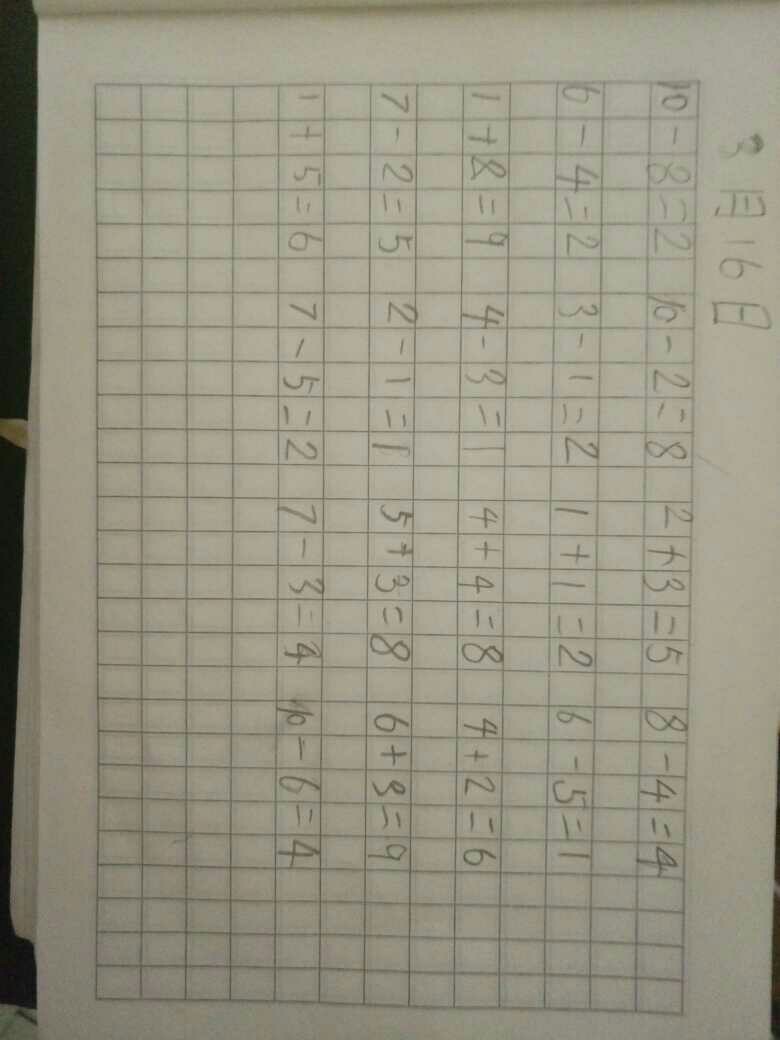 3月16日
10-8=2 10-2=8 2+3=5 8-4=4
6-4=2 3-1=2 1+1=2 6-5=1
1+8=9 4-3=1 4+4=8 4+2=6
7-2=5 2-1=1 5+3=8 6+3=9
1+5=6 7-5=2 7-3=4 10-6=4